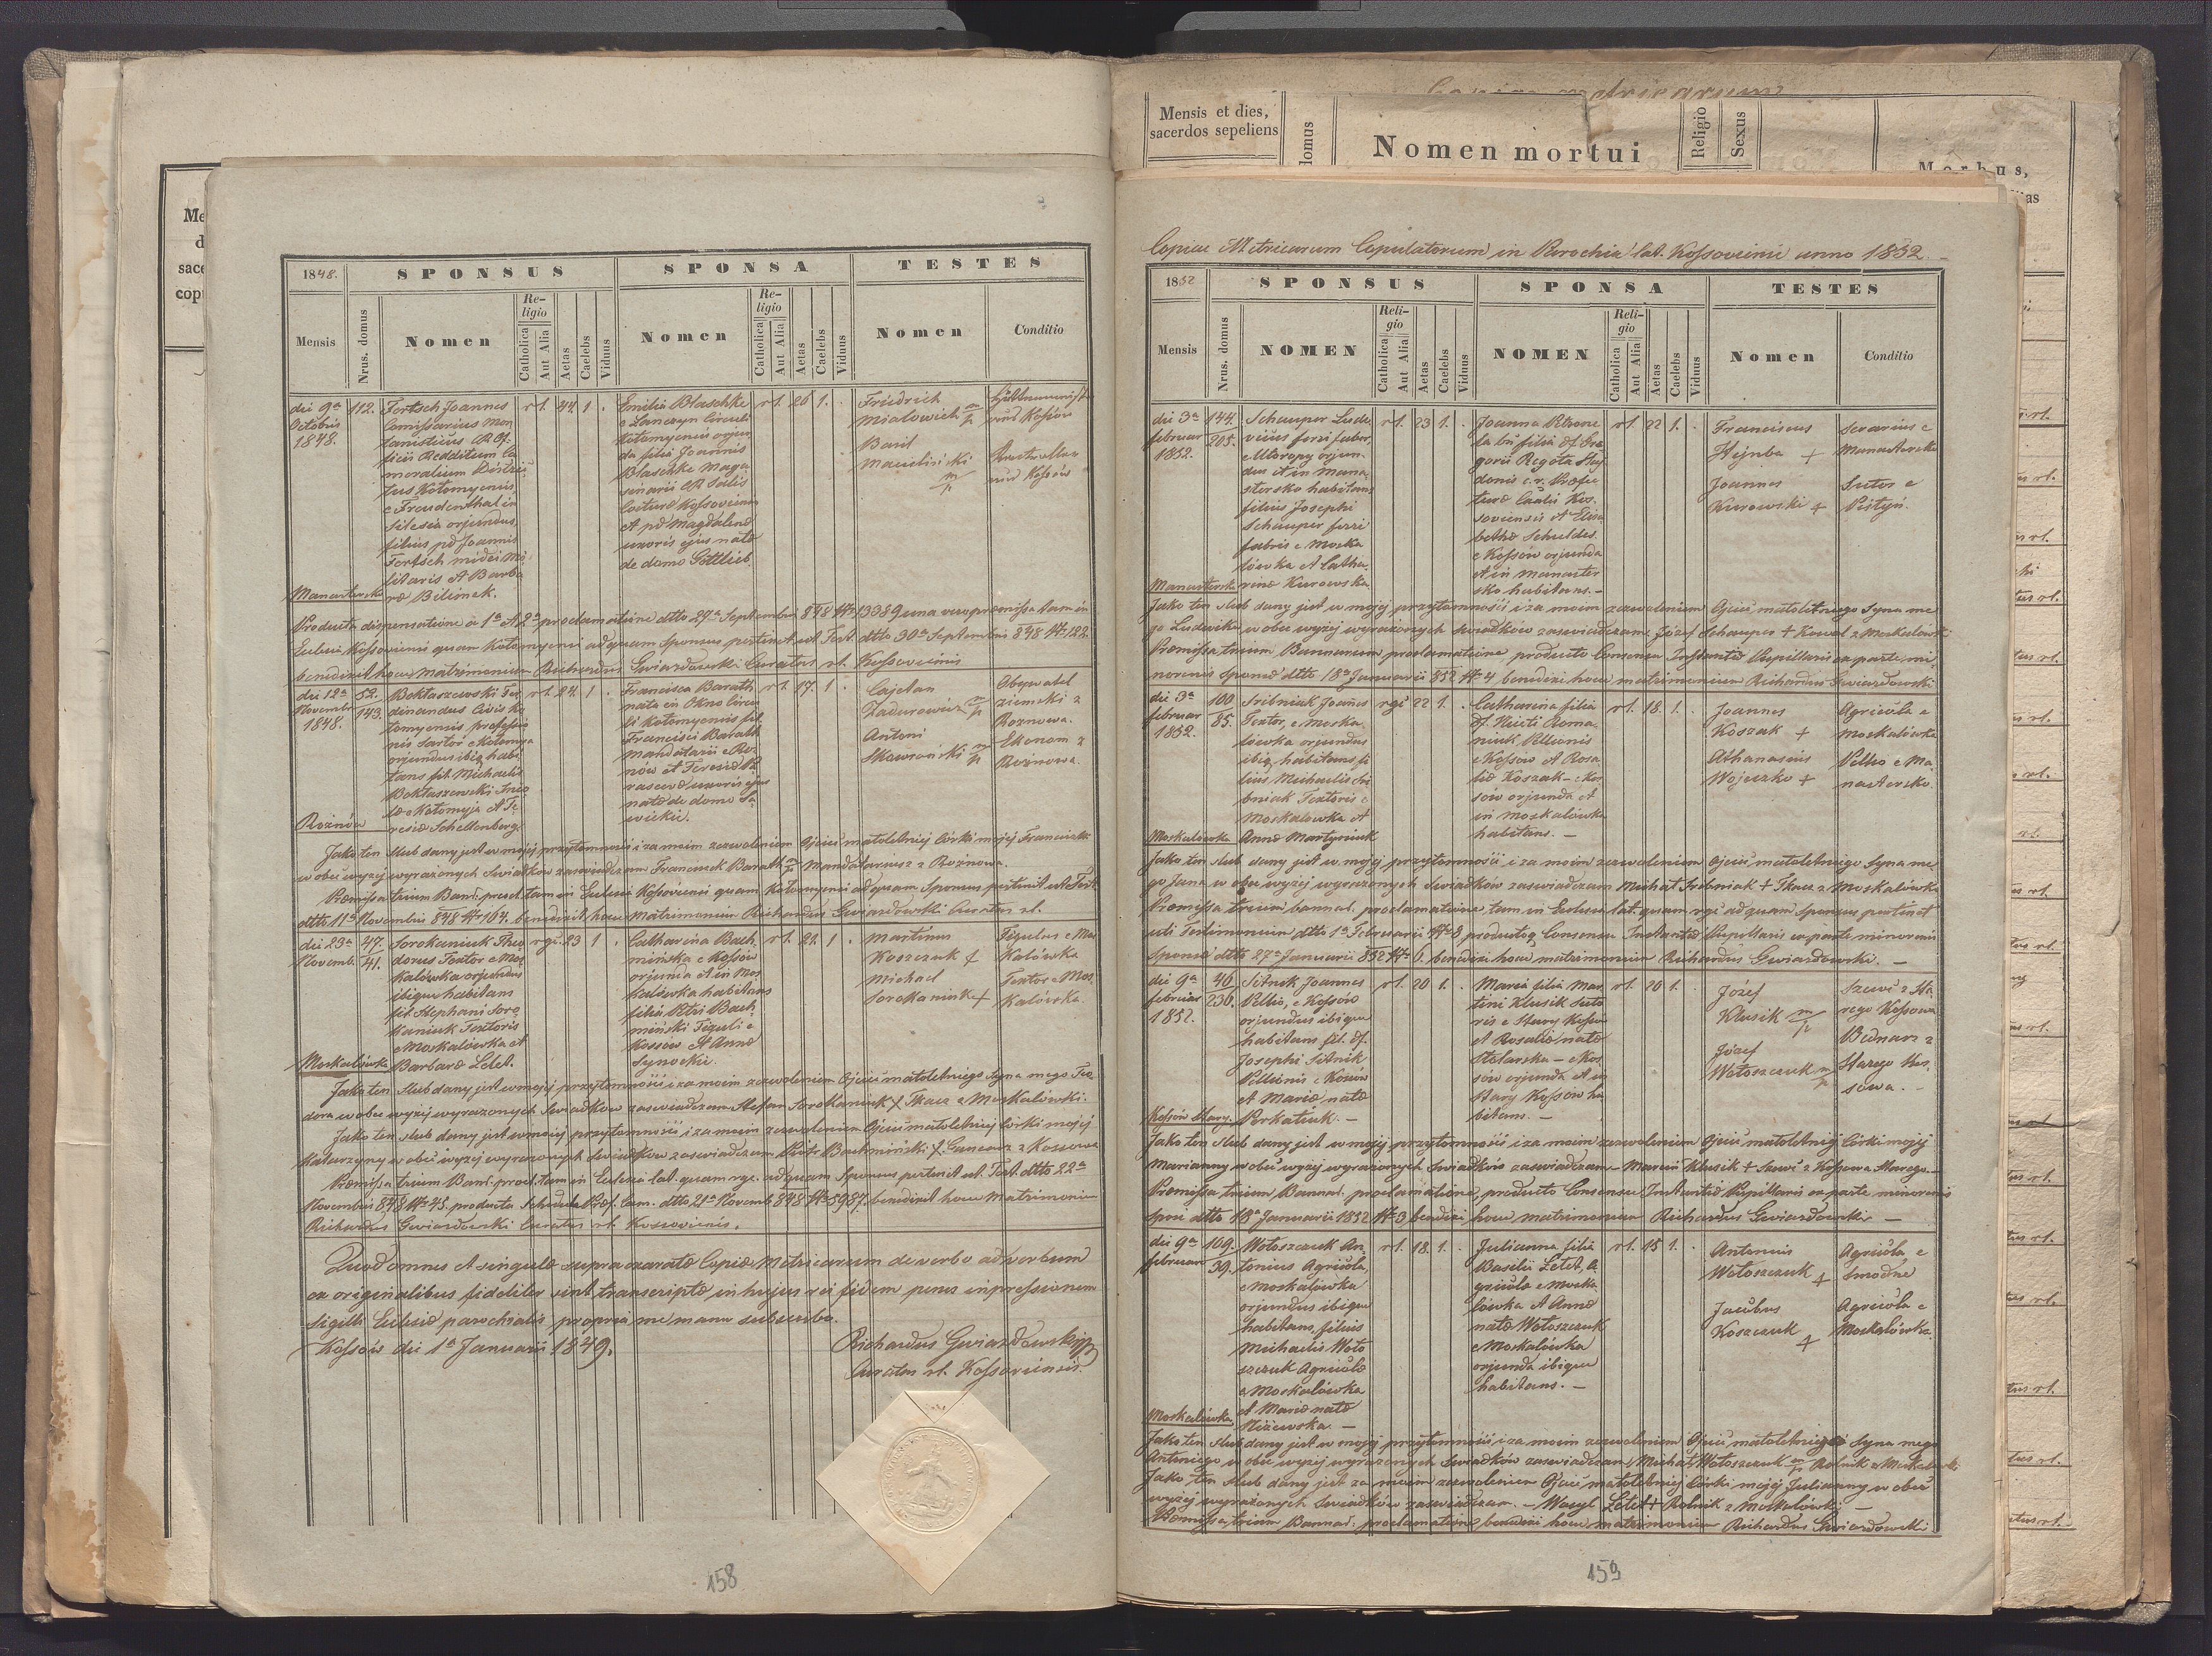 1848.
SPONSUS
SPONSA
TESTES
Mensis
Nrus. domus
Nomen
Re-
ligio
Catholica
Aut Alia
Aetas
Caelebs
Viduus
Nomen
Re-
ligio
Catholica
Aut Alia
Aetas
Caelebs
Viduus
Nomen
Conditio
die 9a
Octobris
1848.
112.
Fertsch Joannes
Comissarius Mon
tanisticus CR Of-
ficii Reddituum Ca
moralium Distric
tus Kolomyensis
e Freudenthal in
Silesia orjundus,
filius pd Joannis
Fertsch
litaris et Barba
rae Bilimek.
rl.
44.
1
Emilia Blaschke
e Lanczyn Circuli
Kolomyensis orjun
da filia Joannis
Blaschke Maga
sinarii CR Salis
Cocturae Kossoviensis
et pd Magdalenae
uxoris ejus natae
de domo Gottlieb.
rl.
26
1.
Friedrich
Basil
und Kossów
und Kossów
Manastersko
Producta dispensatione a 1a et 2a proclamatione dtto 27a Septembris 848 Nr 13389 una vero praemissa tam in
Ecclesia Kossoviensi quam Kolomyensi ad quam Sponsus pertinet ut Test. dtto 30a Septembris 848 Nr 122.
benedixit hocce matrimonium Richardus Gwiazdowski Curatus rl. Kossoviensis
die 12a
Novembr
1848.
52.
143.
Boktaszewski Fer
dinandus Civis Ko
lomyensis professio
nis Sartor e Kolomya
orjundus ibiq habi
tans fil. Michaelis
Boktaszewski
e Kolomyja et Te
resiae Schellenberg.
rl.
24.
1
Francisca Barath
nata in Okno Circu
li Kolomyensis fil.
Francisci Barath
Mandatarii e Roż
nów et Teresiae
uxoris ejus
natae de domo Sa
wickie.
rl.
17.
1
Cajetan
Zadurowicz
Antoni
Skawroński
Obywatel
ziemski z
Rożnowa.
Ekonom z
Rożnowa.
Rożnów
Jako ten ślub dany jest w mojej przytomności i za moim zezwoleniem Ojciec małoletniej Córki mojej Franciszki
w obec wyżej wyrażonych Świadków zaświadczam Franciszek Barath Mandatariusz z Rożnowa.
Praemissa trium Bann. procl. tam in Ecclesia Kossoviensi quam Kolomyensi ad quam Sponsus pertinet ut Test.
dtto 11a Novembris 848 Nr 164. benedixit hocce Matrimonium Richardus Gwiazdowski Curatus rl.
die 23a
Novemb.
47.
41.
Sorokaniuk Theo
dorus Textor e Mos
kalówka orjundus
ibique habitans
fil. Stephani Soro
kaniuk Textoris
e Moskalówka et
Barbarae Letet.
rgr.
23
1
Catharina Bach
mińska e Kossów
orjunda et in Mos
kalówka habitans
filia Petri Bach
miński Figuli e
Kossów et Annae
Synockie.
rl.
21.
1
Martinus
Koszczuk +
Michael
Sorokaniuk +
Figulus e Mos
kalówka
Textor e Mos
kalówka.
Moskalówka
Jako ten ślub dany jest w mojej przytomności i za moim zezwoleniem Ojciec małoletniego Syna mego Teo
dora w obec wyżej wyrażonych Świadków zaświadczam Stefan Sorokaniuk + Tkacz z Moskalówki.
Jako ten ślub dany jest w mojej przytomności i za moim zezwoleniem Ojciec małoletniej Córki mojej
Katarzyny w obec wyżej wyrażonych Świadków zaświadczam Piotr Bachmiński + Garncarz z Kossowa
Praemissa trium Bann. procl. tam in Ecclesia lat. quam rgr. ad quam Sponsus pertinet ut Test. dtto 22a
Novembris 848 Nr 45. producta Schedula Praef. Cam. dtto 21a Novemb. 848 Nr 5987. benedixit hocce Matrimonium
Richardus Gwiazdowski Curatus rl. Kossoviensis.
Quod omnes et singulae supra exaratae Copiae Metricarum de verbo ad verbum
ex originalibus fideliter sint transcriptae in hujus rei fidem penes impressionem
Sigilli Ecclesiae parochialis propria me manu subscribo.
Kossów die 1a Januarii 1849.
Richardus Gwiazdowski
Curatus rl. Kossoviensis.
158
Mensis et dies,
sacerdos sepeliens
Nomen mortui
Religio
Sexus
Morbus,
Copiae Metricarum Copulatorum in Parochia lat. Kossoviensi anno 1852.
1852
SPONSUS
SPONSA
TESTES
Mensis
Nrus. domus
NOMEN
Reli-
gio
Catholica
Aut Alia
Aetas
Caelebs
Viduus
NOMEN
Reli-
gio
Catholica
Aut Alia
Aetas
Caelebs
Viduus
Nomen
Conditio
die 3a
februar
1852.
144.
205.
Schauper Ludo
vicus ferri faber,
e Utoropy orjun
dus et in Mana
stersko habitans
filius Josephi
Schauper ferri
fabris e Moska
lówka et Catha
rinae Kurowska.
rl.
23
1.
Joanna Petrone
la bin filia df. Gre
gorii Regota Hay
donis c.r. Praefec
turae Caalis Kos
soviensis et Elisa
bethae Schuldes.
e Kossów orjunda
et in Manaster
sko habitans. –
rl.
22
1.
Franciscus
Hejnba +
Joannes
Kurowski +
Serarius e
Manastersko
Sutor e
Pistyń.
Manastersko
Jako ten ślub dany jest w mojej przytomności i za moim zezwoleniem Ojciec małoletniego Syna me
go Ludwika w obec wyżej wyrażonych Świadków zaświadczam Józef Schauper + Kowal z Moskalówki
Praemissa trium Bannorum proclamatione, producto Consensu Instantiae Pupillaris ex parte mi-
norennis sponsae dtto 18a Januarii 852 Nr 4 benedixi hocce matrimonium Richardus Gwiazdowski
die 3a
februar
1852.
100
85.
Sribniak Joannes
Textor, e Moska
lówka orjundus
ibiq habitans fi
lius Michaelis Sri
bniak Textoris e
Moskalówka et
Annae Martyniuk
rgr
22
1.
Catharina filia
df. Niceti Roma
niuk Pellionis
e Kossów et Rosa
liae Koszak – e Kos
sów orjunda et
in Moskalówka
habitans. –
rl.
18.
1.
Joannes
Koszak +
Athanasius
Wojeczko +
Agricola e
Moskalówka
Pellio e Ma
nastersko.
Moskalówka
Jako ten ślub dany jest w mojej przytomności i za moim zezwoleniem Ojciec małoletniego Syna me
go Jana w obec wyżej wyrażonych Świadków zaświadczam Michał Sribniak + Tkacz z Moskalówki
Praemissa trium bannal. proclamatione tam in Ecclesia lat. quam rgr. ad quam Sponsus pertinet
uti Testimonium dtto 1a Februarii Nr 8, productoq Consensu Instantiae Pupillaris ex parte minorennis
Sponsae dtto 27a Januarii 852 Nr 6. benedixi hocce matrimonium Richardus Gwiazdowski. –
die 9a
februar
1852.
46
230.
Sitnik Joannes
Pellio, e Kossów
orjundus ibique
habitans fil. df.
Josephi Sitnik
Pellionis e Kosów
et Mariae natae
Perkatiuk. –
rl.
20
1.
Maria filia Mar
tini Klusik Suto
ris e Stary Kossów
et Rosaliae natae
Stolarska – e Kos
sów orjunda et in
Stary Kossów ha
bitans. –
rl.
20
1.
Józef
Klusik
Józef
Wołoszczuk
Szewc z Sta
rego Kossowa
Bednarz z
Starego Kos
sowa. –
Kossów Stary.
Jako ten ślub dany jest w mojej przytomności i za moim zezwoleniem Ojciec małoletniej Córki mojej
Marianny w obec wyżej wyrażonych Świadków zaświadczam – Marcin Klusik + Szewc z Kossowa Starego. –
Praemissa trium Bannal. proclamatione, producto Consensu Instantiae Pupillaris ex parte minorennis
dtto 18a Januarii 1852 Nr 3 benedixi hocce matrimonium Richardus Gwiazdowski –
die 9a
februar
109.
39.
Wołoszczuk An
tonius Agricola,
e Moskalówka
orjundus ibique
habitans, filius
Michaelis Woło
szczuk Agricolae
e Moskalówka
et Mariae natae
Niżewska. –
rl.
18.
1.
Julianna filia
Basilii Letet, A
gricola e Moska
lówka et Annae
natae Wołoszczuk
e Moskalówka
orjunda ibique
habitans. –
rl.
15
1.
Antonius
Wołoszczuk +
Jacobus
Koszczuk +
Agricola e
Smodne
Agricola e
Moskalówka.
Moskalówka
Jako ten ślub dany jest w mojej przytomności i za moim zezwoleniem Ojciec małoletniego Syna mego
Antoniego w obec wyżej wyrażonych Świadków zaświadczam Michał Wołoszczuk Rolnik z Moskalówki
Jako ten ślub dany jest za moim zezwoleniem Ojciec małoletniej Córki mojej Julianny w obec
wyżej wyrażonych Świadków zaświadczam. – Wasyl Letet + Rolnik z Moskalówki –
Praemissa trium Bannal: proclamatione benedixi hocce matrimonium Richardus Gwiazdowski
159